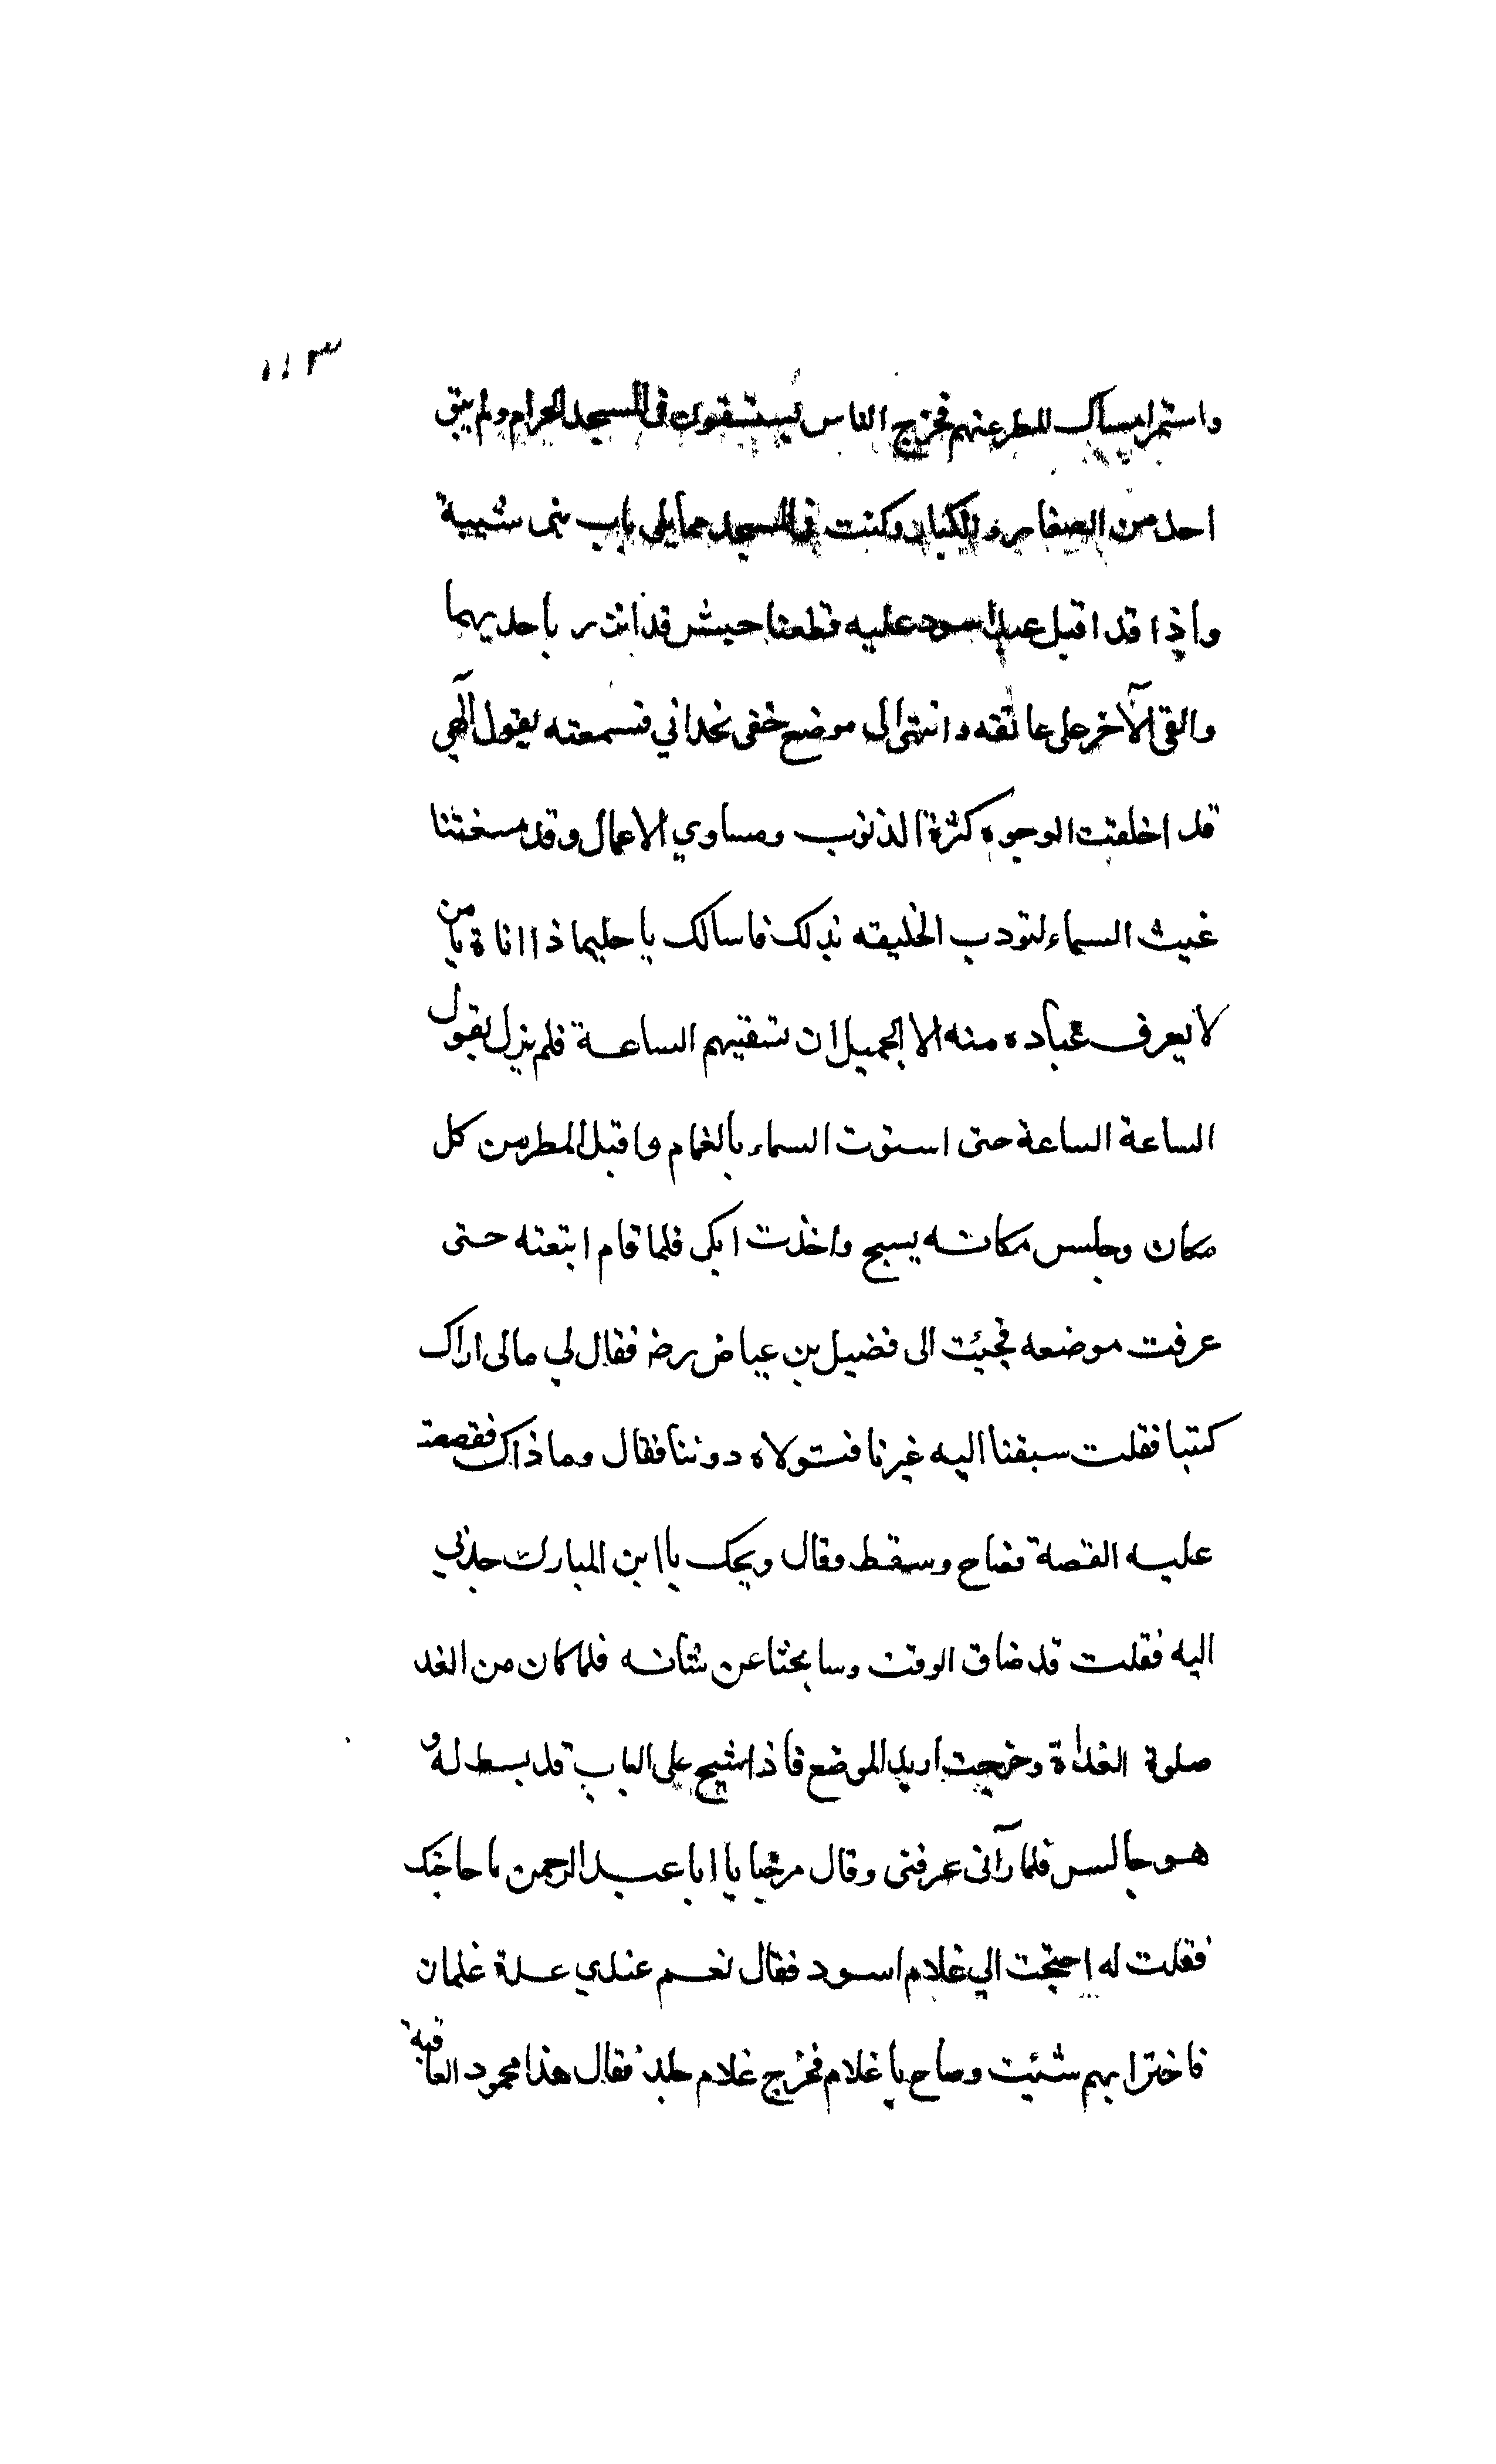 ١١٣
واستمر امساك المطر عنهم فخرج الناس يستسقون في المسجد الحرام ولم يبق
احد من الصغار والكبار وكنت في المسجد مما يلي باب بنى شيبية
واذا قد اقبل عبد اسود عليه قطعتا حيش قد اتزر باحديهما
والقى الآخر على عاتقه وانتهى الى موضع خفى نحداني فسمعته يقول آلهي
قد اخلقت الوجوه كثرة الذنوب ومساوي الاعمال وقد منعتنا
غيث السماء لتودب الخليقه بذلك فاسالك يا حليما ذا اناة يا من
لا يعرف عباده منه الا الجميل ان تسقيهم الساعة فلم يزل يقول
الساعة الساعة حتى استوت السماء بالغمام واقبل المطر من كل
مكان وجلس مكانه يسبح واخذت ابكى فلما قام اتبعته حتى
عرفت موضعه فجيئت الى فضيل بن عياض رض فقال لي مالى اراك
كئبا فقلت سبقنا اليه غيرنا فتولاه دوننا فقال وما ذاك فقصصت
عليه القصة فصاح وسقط وقال ويحك يا ابن المبارك خذني
اليه فقلت قد ضاق الوقت وسابحثا عن شانه فلما كان من الغد
صلوة الغداة وخرجت اريد الموضع فاذا شيخ على الباب قد بسط له و
هو جالس فلما رآنى عرفنى وقال مرحبا يا ابا عبد الرحمن ما حاجتك
فقلت له احتجت الي غلام اسود فقال نعم عندي عدة غلمان
فاختر ايهم شئيت وصاح يا غلام فخرج غلام جلد فقال هذا محمود العاقبة